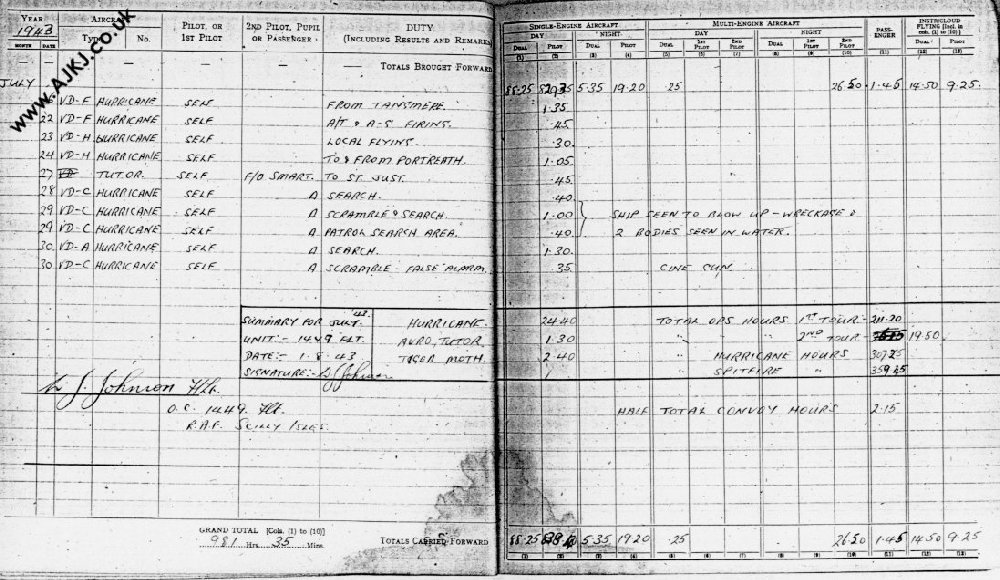 YEAR AIRCRAFT PILOT, OR 2ND PILOT, PUPIL DUTY
1943 1ST PILOT OR PASSENGER (INCLUDING RESULTS AND REMARKS
MONTH DATE Type No.
— — — — — — TOTALS BROUGHT FORWARD
JULY
VD-F HURRICANE SELF FROM TANGMERE.
22 VD-F HURRICANE SELF A/T & A-S FIRING.
23 VD-H HURRICANE SELF LOCAL FLYING.
24 VD-H HURRICANE SELF TO & FROM PORTREATH.
27 TUTOR. SELF F/O SMART. TO ST. JUST.
28 VD-C HURRICANE SELF A SEARCH.
29 VD-C HURRICANE SELF A SCRAMBLE & SEARCH.
29 VD-C HURRICANE SELF A PATROL SEARCH AREA.
30 VD-A HURRICANE SELF A SEARCH.
30 VD-C HURRICANE SELF A SCRAMBLE FALSE ALARM.
SUMMARY FOR JULY '43. HURRICANE.
UNIT:- 1449 FLT. AVRO, TUTOR.
DATE:- 1.8.43 TIGER MOTH.
SIGNATURE:- L J Johnson
L J. Johnson Flt.
O.C. 1449. Flt.
R.A.F. SCILLY ISLES.
GRAND TOTAL [Cols. (1) to (10)]
981 Hrs. 35 Mins.
TOTALS CARRIED FORWARD
www.AJKJ.co.uk
SINGLE-ENGINE AIRCRAFT MULTI-ENGINE AIRCRAFT PASS-ENGER INSTR/CLOUD FLYING [Incl. in cols. (1) to (10)]
DAY NIGHT DAY NIGHT
DUAL PILOT DUAL PILOT DUAL 1ST PILOT 2ND PILOT DUAL 1ST PILOT 2ND PILOT DUAL PILOT
(1) (2) (3) (4) (5) (6) (7) (8) (9) (10) (11) (12) (13)
88.25 5.35 19.20 .25 26.50 1.45 14.50 9.25
1.35
.45
.30
1.05
.45
.40
1.00 SHIP SEEN TO BLOW UP - WRECKAGE &
.40 2 BODIES SEEN IN WATER.
1.30
.35 CINE GUN
24.40 TOTAL OPS HOURS 1ST TOUR - 211.20
1.30 " " " 2ND TOUR - 19.50
2.40 " HURRICANE HOURS 307.25
" SPITFIRE " 359.25
HALF TOTAL CONVOY HOURS 2.15
88.25 5.35 19.20 .25 26.50 1.45 14.50 9.25
(1) (2) (3) (4) (5) (6) (7) (8) (9) (10) (11) (12) (13)